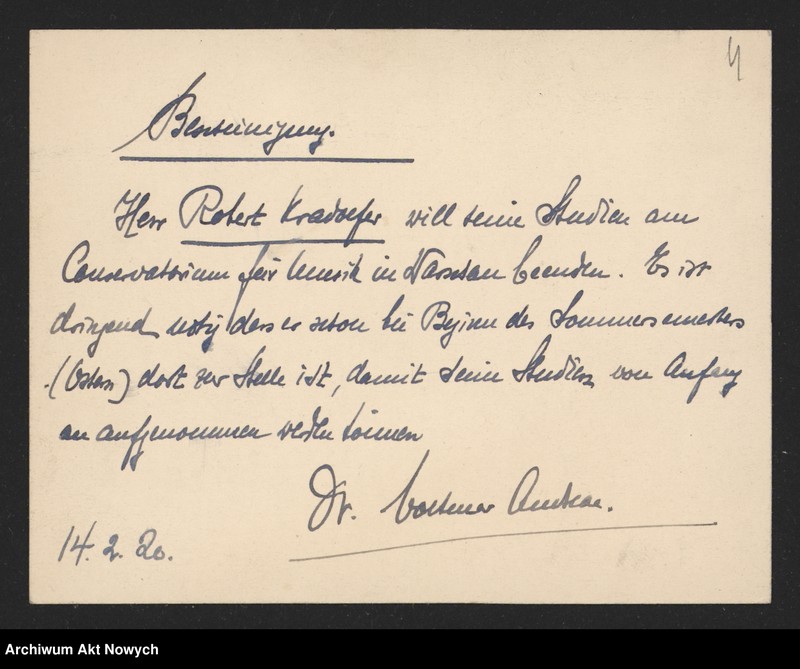 4
Bescheinigung.
Herr Robert Kradolfer will seine Studien am
Conservatorium für Musik in Warschau beenden. Es ist
dringend nötig dass er schon bei Beginn des Sommersemesters
(Ostern) dort zur Stelle ist, damit seine Studien von Anfang
an aufgenommen werden können
Dr. Volkmar Andreae.
14. 2. 20.
Archiwum Akt Nowych